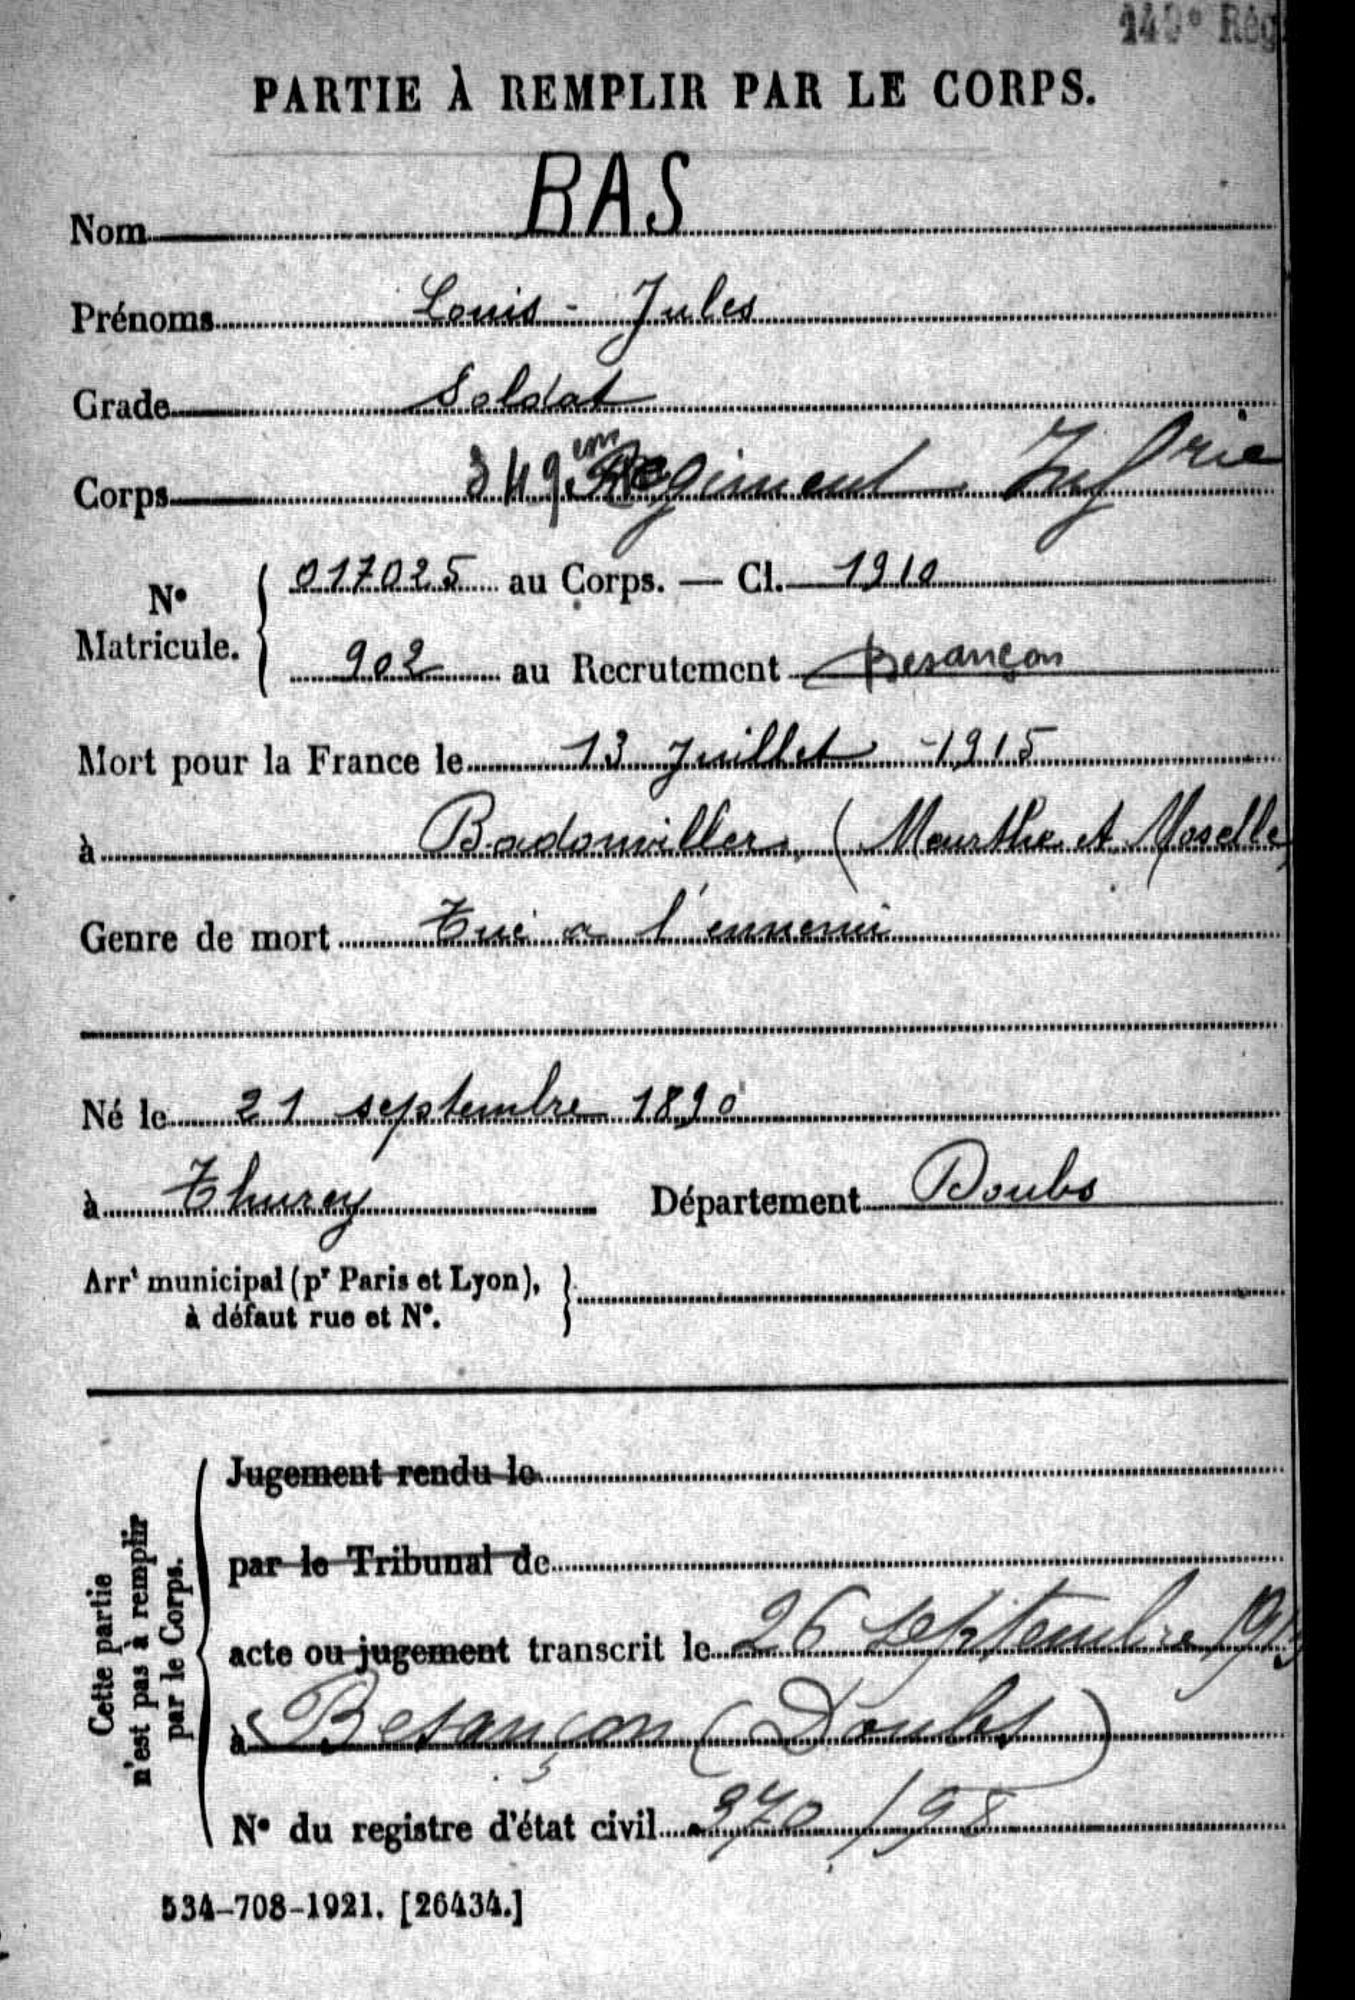 149e Rég
PARTIE À REMPLIR PAR LE CORPS.
Nom BAS
Prénoms Louis - Jules
Grade Soldat
Corps 349em Regiment Infrie
No Matricule. { 017025 au Corps. — Cl. 1910
902 au Recrutement Besançon
Mort pour la France le 13 Juillet 1915
à Badonviller, (Meurthe et Moselle
Genre de mort Tué a l'ennemi
Né le 21 septembre 1890
à Thurey Département Doubs
Arrt municipal (pr Paris et Lyon), à défaut rue et No. }
Cette partie n'est pas à remplir par le Corps.
Jugement rendu le
par le Tribunal de
acte ou jugement transcrit le 26 septembre
à Besançon (Doubs)
No du registre d'état civil 370/98
534-708-1921. [26434.]